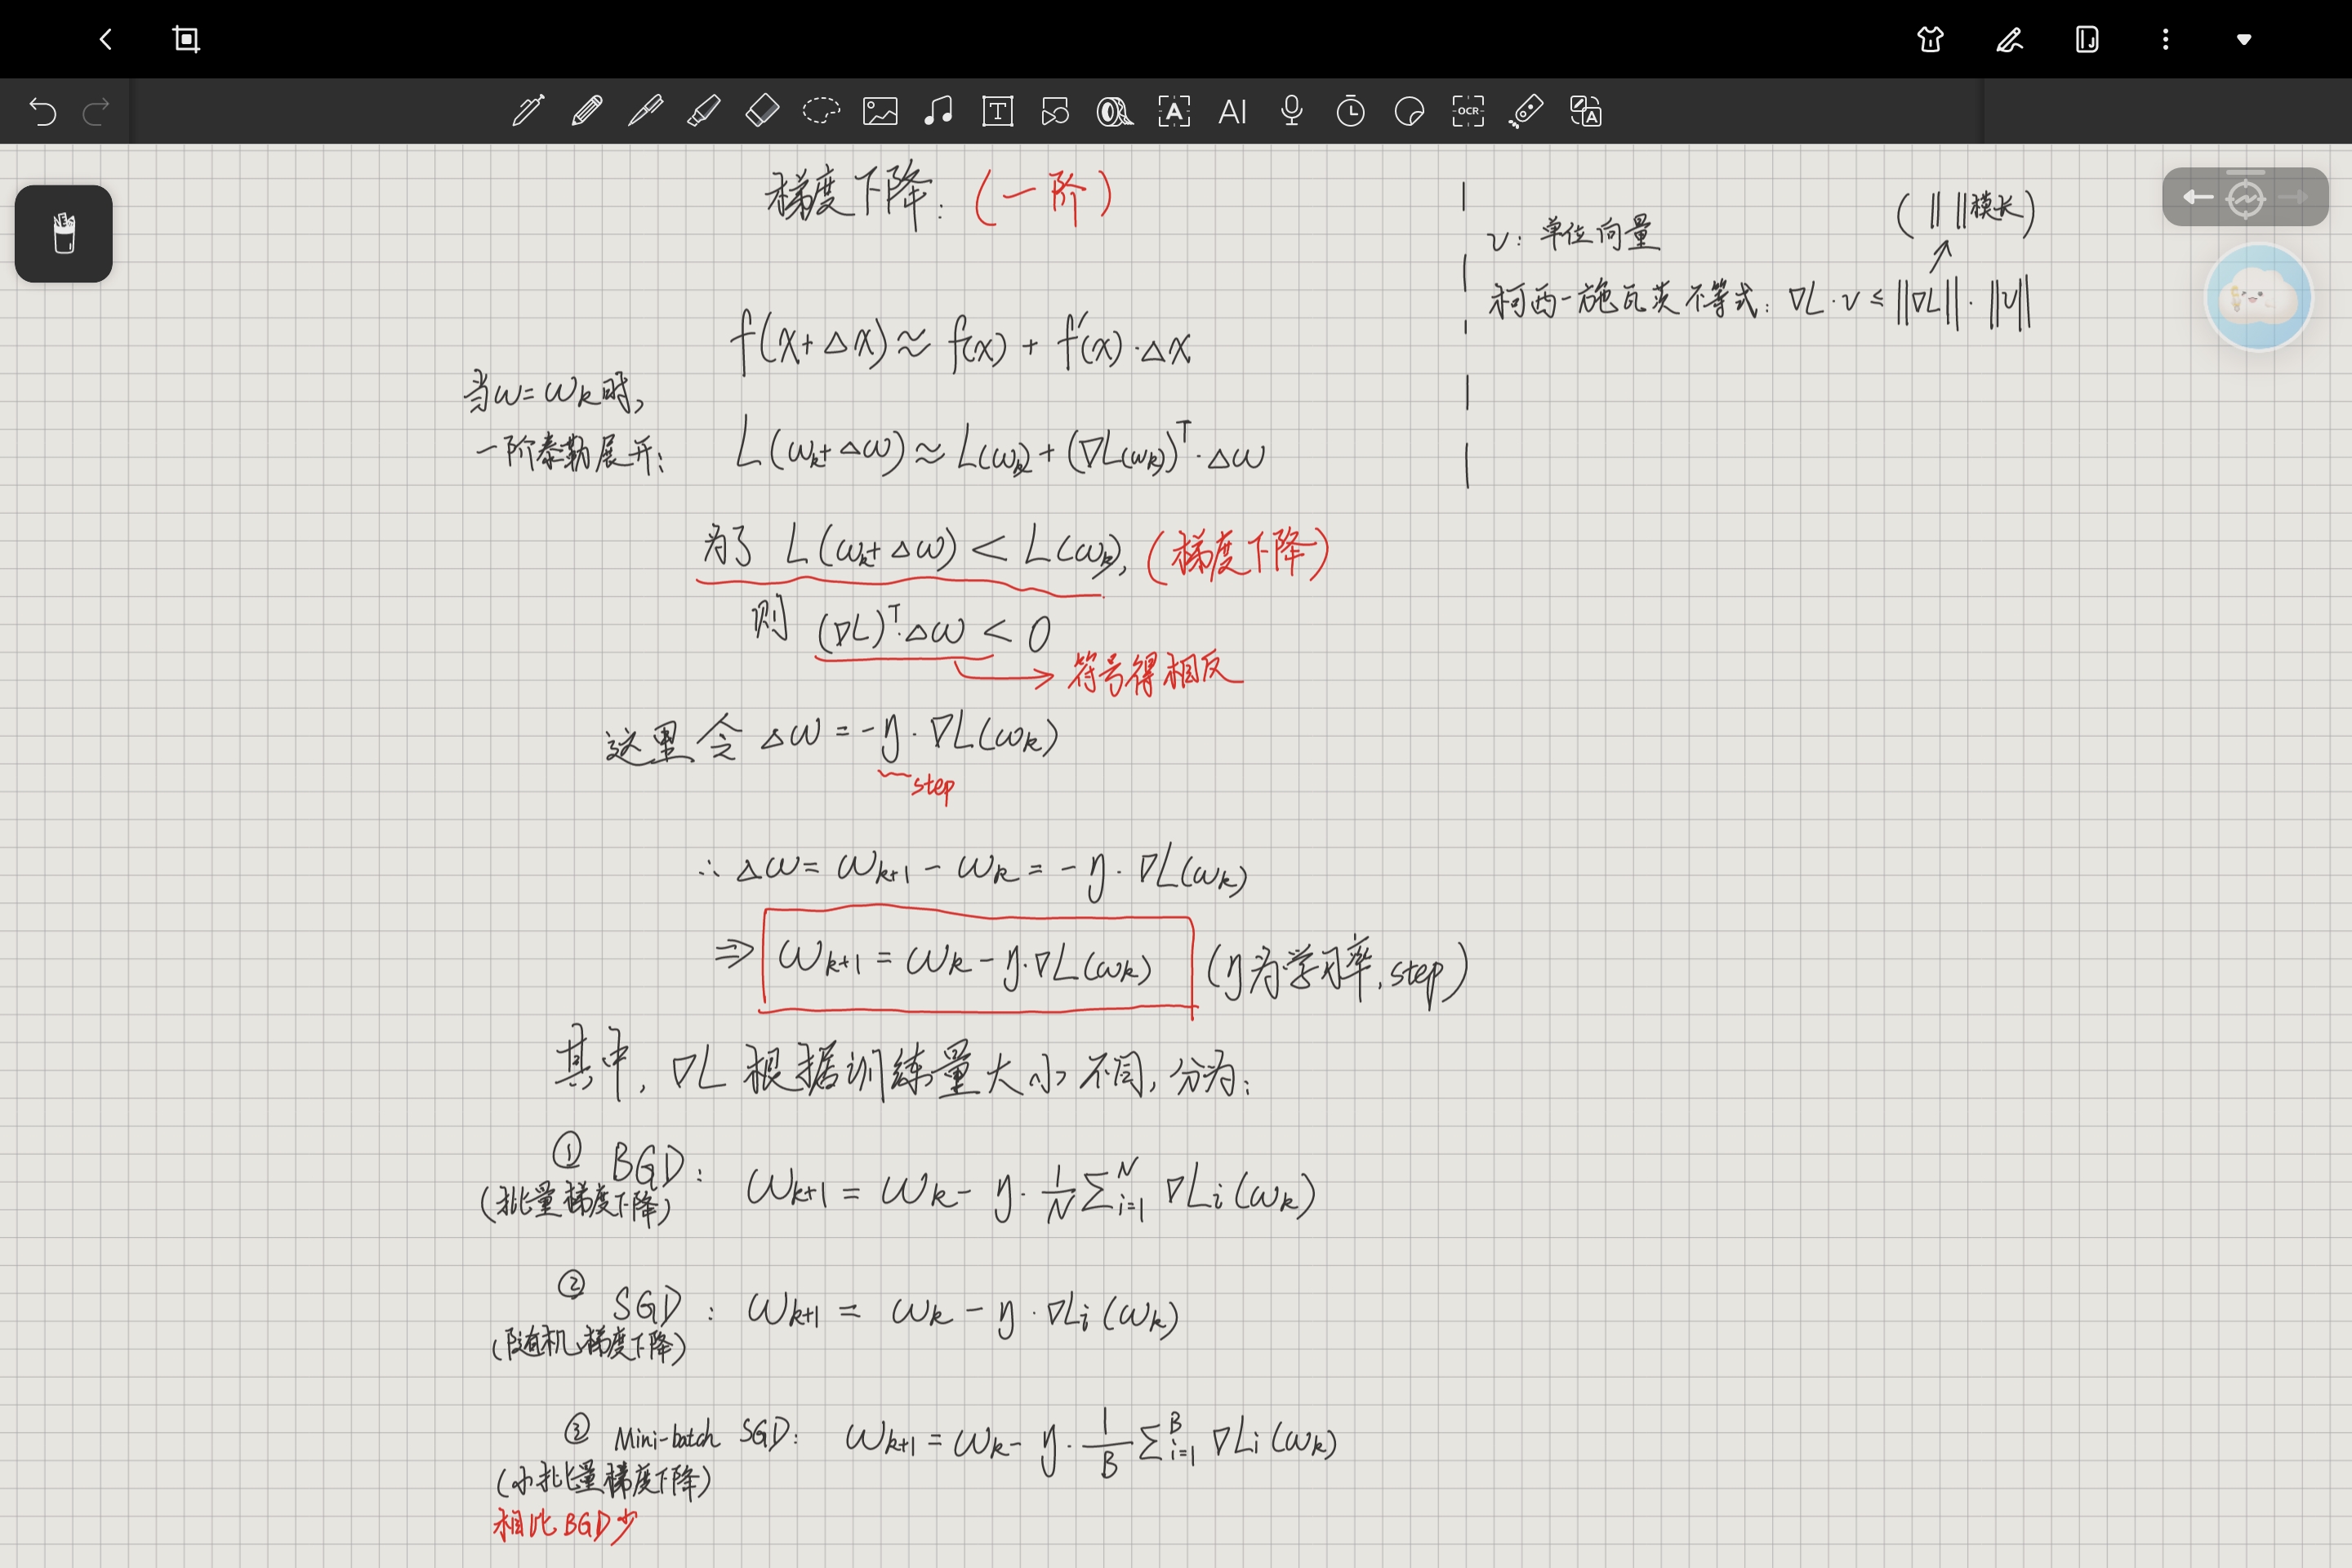 AI
OCR
梯度下降：（一阶）
f(x+Δx)≈f(x)+f′(x)·Δx
当ω=ωk时，
一阶泰勒展开： L(ωk+Δω)≈L(ωk)+(∇L(ωk))ᵀ·Δω
为了 L(ωk+Δω)<L(ωk)，（梯度下降）
则 (∇L)ᵀ·Δω<0
符号得相反
这里令 Δω=-η·∇L(ωk)
step
∴ Δω=ωk+1-ωk=-η·∇L(ωk)
⇒ ωk+1=ωk-η·∇L(ωk) （η为学习率，step）
其中，∇L 根据训练量大小不同，分为：
① BGD： ωk+1=ωk-η·1/N ∑ᵢ₌₁ᴺ ∇Li(ωk)
（批量梯度下降）
② SGD： ωk+1=ωk-η·∇Li(ωk)
（随机梯度下降）
③ Mini-batch SGD： ωk+1=ωk-η·1/B ∑ᵢ₌₁ᴮ ∇Li(ωk)
（小批量梯度下降）
相比BGD少
（‖ ‖模长）
v：单位向量
柯西-施瓦茨不等式：∇L·v≤‖∇L‖·‖v‖